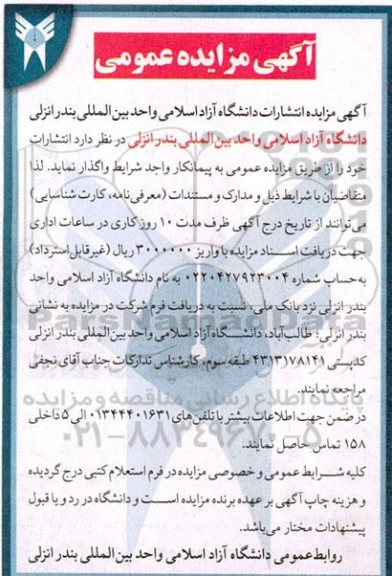 آگهی مزایده عمومی
آگهی مزایده انتشارات دانشگاه آزاد اسلامی واحد بین المللی بندر انزلی
دانشگاه آزاد اسلامی واحد بین المللی بندر انزلی در نظر دارد انتشارات
خود را از طریق مزایده عمومی به پیمانکار واجد شرایط واگذار نماید. لذا
متقاضیان با شرایط ذیل و مدارک و مستندات (معرفی نامه، کارت شناسایی)
می‌توانند از تاریخ درج آگهی ظرف مدت ۱۰ روز کاری در ساعات اداری
جهت دریافت اسناد مزایده با واریز ۳۰۰۰۰۰۰ ریال (غیر قابل استرداد)
به حساب شماره ۰۲۲۰۴۲۷۹۲۳۰۰۴ به نام دانشگاه آزاد اسلامی واحد
بندر انزلی نزد بانک ملی، نسبت به دریافت فرم شرکت در مزایده به نشانی
بندر انزلی؛ طالب‌آباد، دانشگاه آزاد اسلامی واحد بین المللی بندر انزلی
کدپستی ۴۳۱۳۱۷۸۱۴۱ طبقه سوم، کارشناس تدارکات جناب آقای نجفی
مراجعه نمایند.
در ضمن جهت اطلاعات بیشتر با تلفن های ۰۱۳۴۴۴۰۱۶۳۱ الی ۵ داخلی
۱۵۸ تماس حاصل نمایند.
کلیه شرایط عمومی و خصوصی مزایده در فرم استعلام کتبی درج گردیده
و هزینه چاپ آگهی بر عهده برنده مزایده است و دانشگاه در رد و یا قبول
پیشنهادات مختار می‌باشد.
روابط عمومی دانشگاه آزاد اسلامی واحد بین المللی بندر انزلی
پایگاه اطلاع رسانی مناقصه و مزایده